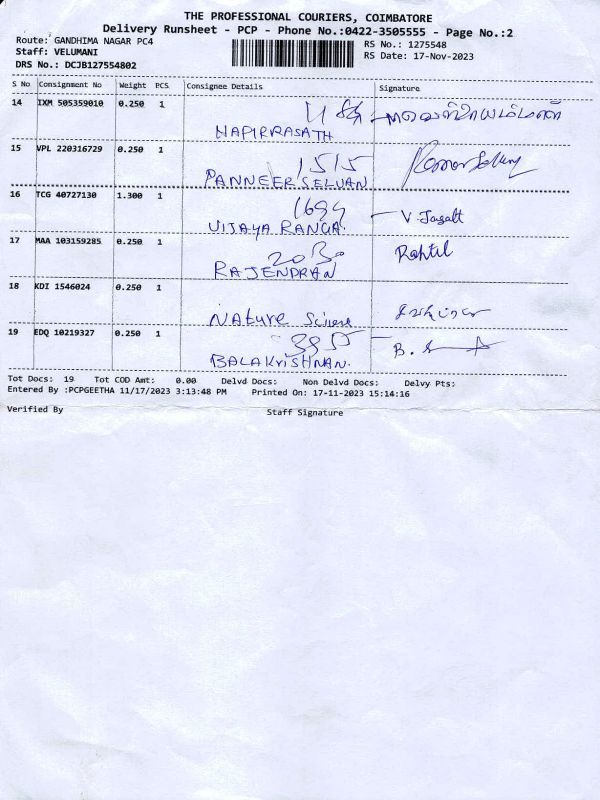 THE PROFESSIONAL COURIERS, COIMBATORE
Delivery Runsheet - PCP - Phone No.:0422-3505555 - Page No.:2
Route: GANDHIMA NAGAR PC4
RS No.: 1275548
Staff: VELUMANI
RS Date: 17-Nov-2023
DRS No.: DCJB127554802
S No Consignment No Weight PCS Consignee Details Signature
14 IXM 505359010 0.250 1
HAPIRRASATH
15 VPL 220316729 0.250 1 1515
PANNEERSELVAN
16 TCG 40727130 1.300 1 1699
VIJAYA RANGA.
17 MAA 103159285 0.250 1 2030
RAJENDRAN
18 KDI 1546024 0.250 1
Nature
19 EDQ 10219327 0.250 1 B.
BALAKRISHNAN.
Tot Docs: 19 Tot COD Amt: 0.00 Delvd Docs: Non Delvd Docs: Delvy Pts:
Entered By :PCPGEETHA 11/17/2023 3:13:48 PM Printed On: 17-11-2023 15:14:16
Verified By Staff Signature